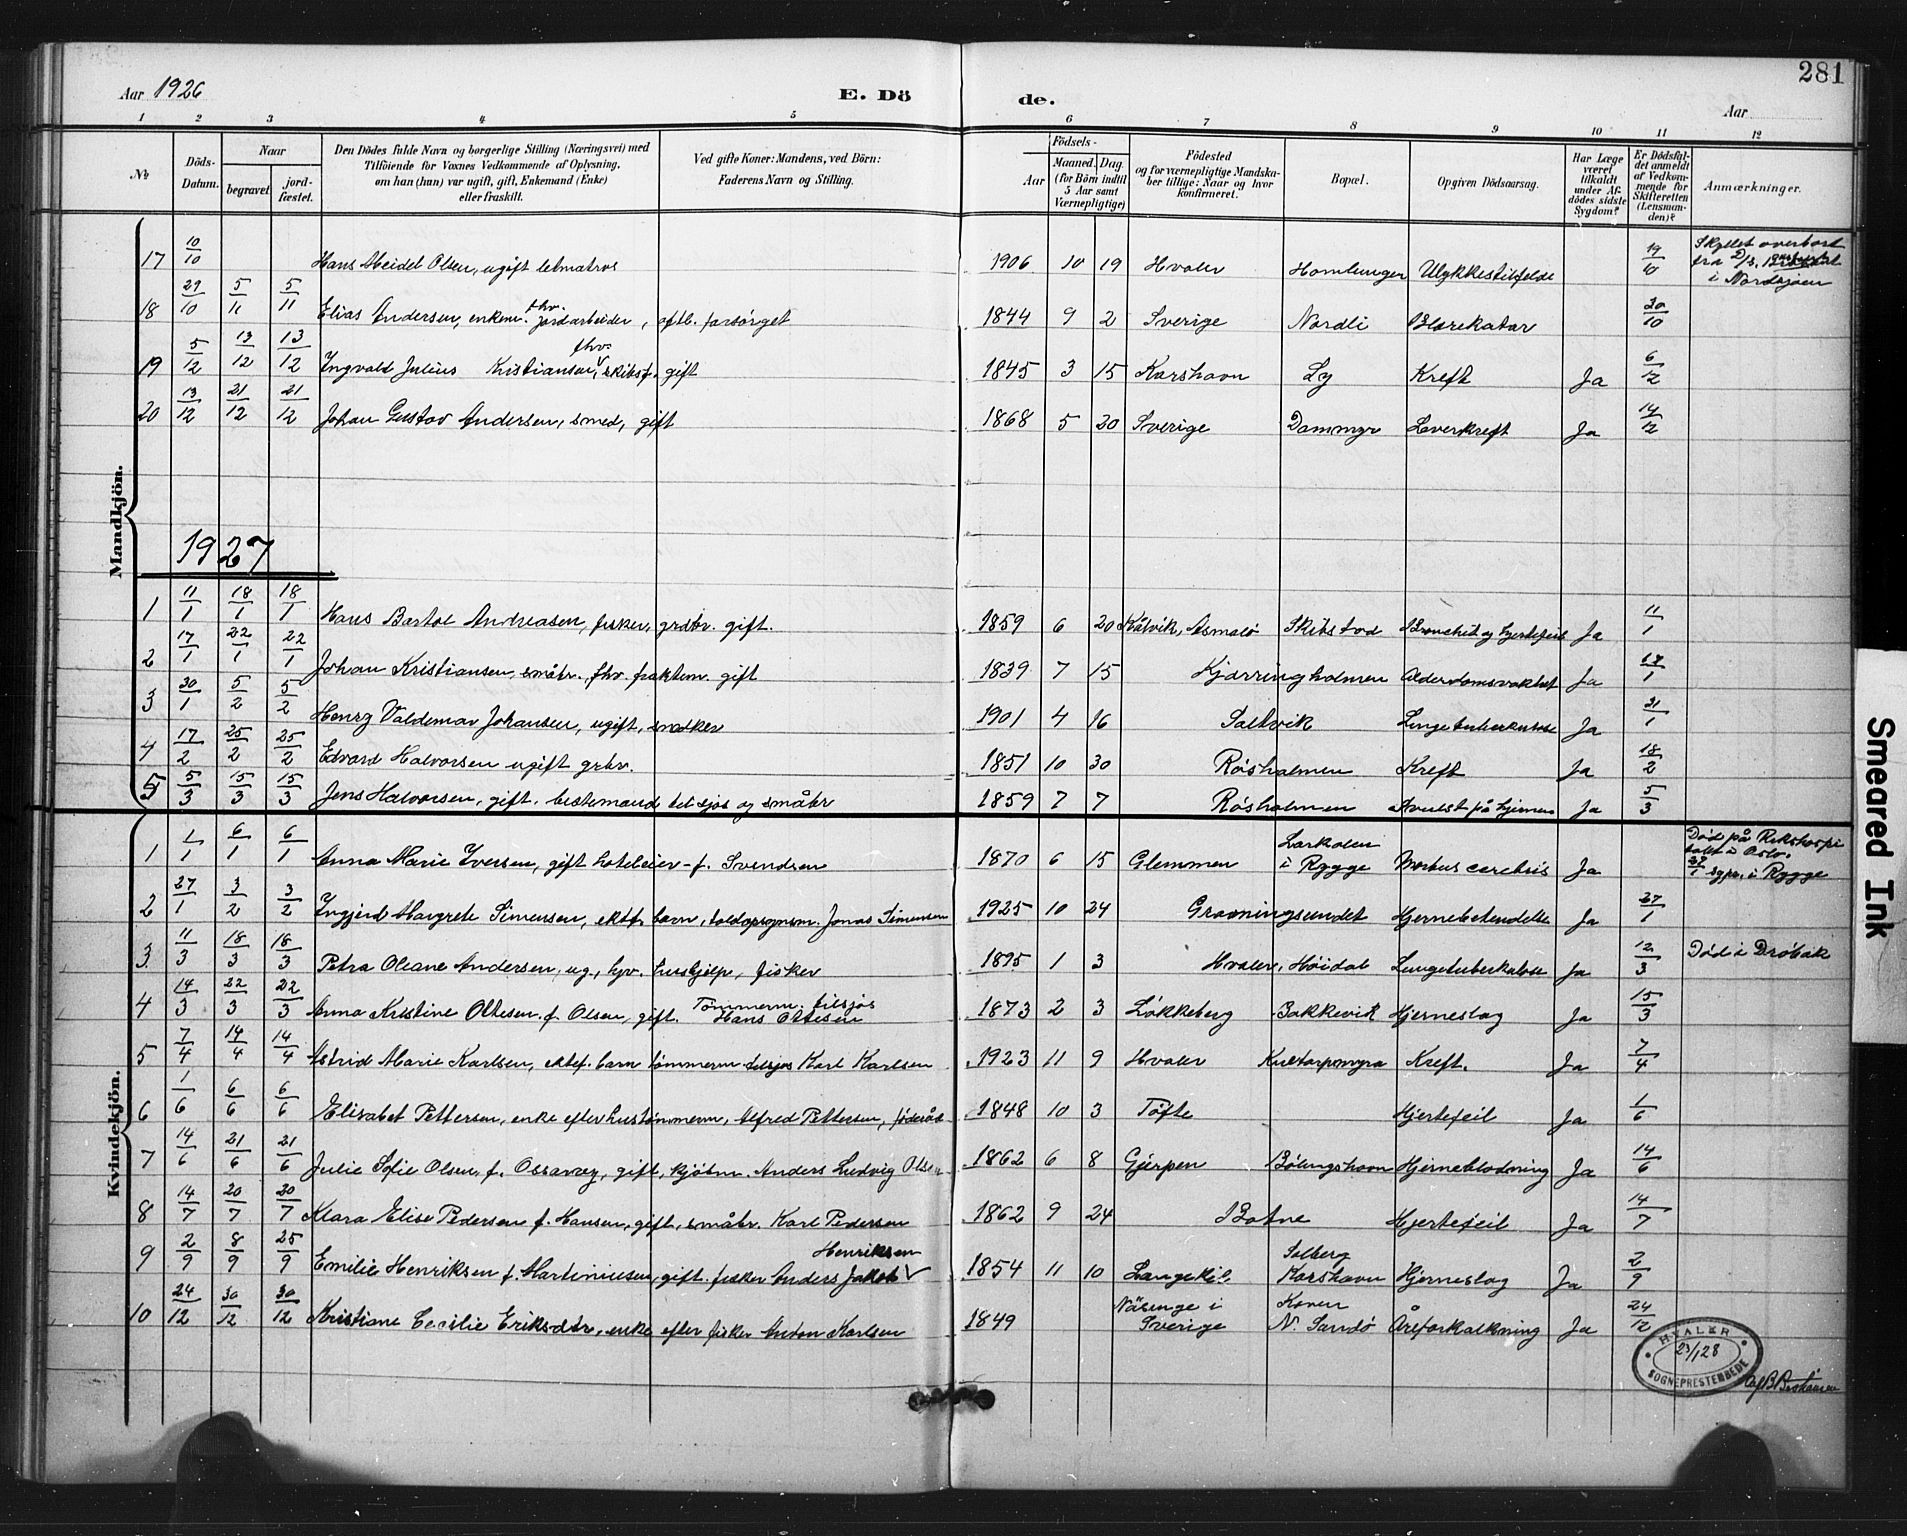 281
Aar 1926 E. Dö de. Aar
1 2 3 4 5 6 7 8 9 10 11 12
№ Döds-Datum. Naar begravet jordfæstet. Den Dödes fulde Navn og borgerlige Stilling (Næringsvei) med Tilföiende for Voxnes Vedkommende af Oplysning, om han (hun) var ugift, gift, Enkemand (Enke) eller fraskilt. Ved gifte Koner: Mandens, ved Börn: Faderens Navn og Stilling. Födsels- Aar Maaned. Dag. (for Börn indtil 5 Aar samt Værnepligtige) Födested og for værnepligtige Mandskaber tillige: Naar og hvor konfirmeret. Bopæl. Opgiven Dödsaarsag. Har Læge været tilkaldt under Afdödes sidste Sygdom? Er Dödsfaldet anmeldt af Vedkommende for Skifteretten (Lensmanden)? Anmærkninger.
Mandkjön.
17 10/10 Hans Meidel Olsen, ugift letmatros 1906 10 19 Hvaler Homlungen Ulykkestilfelde 19/10 Skyllet overbort fra D/S i Nordsjøen
18 29/10 5/11 5/11 Elias Andersen, enkem. fhv. jordarbeider, offtl. forsørget 1844 9 2 Sverige Nordli Blærekatar 30/10
19 5/12 13/12 13/12 Ingvald Julius Kristiansen, fhv. skibsf. gift 1845 3 15 Korshavn Ly Kreft Ja 6/12
20 13/12 21/12 21/12 Johan Gustav Andersen, smed, gift 1868 5 20 Sverige Dammyr Leverkreft Ja 14/12
1927
1 11/1 18/1 18/1 Hans Bartol Andreasen, fisker, grdbr. gift. 1859 6 20 Kålvik, Asmalö Skibstad Bronchit og hjertefeil Ja 11/1
2 17/1 22/1 22/1 Johan Kristiansen, småbr., fhv. fraktem. gift 1839 7 15 Kjærringholmen Alderdomssvakhet Ja 17/1
3 30/1 5/2 5/2 Henry Valdemar Johansen, ugift, snedker 1901 4 16 Saltvik Lungetuberkulose Ja 31/1
4 17/2 25/2 25/2 Edvard Halvorsen ugift grbr. 1851 10 30 Røsholmen Kreft Ja 18/2
5 5/3 15/3 15/3 Jens Halvorsen, gift, bestemand tilsjøs og småbr 1859 7 7 Røsholmen Svulst på hjernen Ja 5/3
Kvindekjön.
1 1/1 6/1 6/1 Anna Marie Iversen, gift hoteleier - f. Svendsen 1870 6 15 Glemmen Larkolen i Rygge Morbus cerebris Ja Død på Rikshospitalet i Oslo. i Rygge
2 27/1 3/2 3/2 Ingjerd Margrete Simensen, ektf. barn, toldopsynsm. Jonas Simensen 1925 10 24 Gravningsundet Hjernebetendelse Ja 27/1
3. 11/3 18/3 18/3 Petra Oleane Andersen, ug., hjv. hushjelp, fisker 1895 1 3 Hvaler, Høidal Lungetuberkulose Ja 12/3 Død i Drøbak
4 14/3 22/3 22/3 Anna Kristine Ottesen. f. Olsen, gift. Tømmerm. tilsjøs Hans Ottesen 1873 2 3 Løkkeberg Bakkevik Hjerneslag Ja 15/3
5 7/4 14/4 14/4 Astrid Marie Karlsen, ektef. barn tømmerm tilsjøs Karl Karlsen 1923 11 9 Hvaler Kultorpmyra Kreft. Ja 7/4
6 1/6 6/6 6/6 Elisabet Pettersen, enke efter hustømmerm, Alfred Pettersen, føderåd 1848 10 3 Tøfte Hjertefeil Ja 1/6
7 14/6 21/6 21/6 Julie Sofie Olsen, f. Ossarvey, gift, kjøbm. Anders Ludvig Olsen 1862 6 8 Gjerpen Bølingshavn Hjerneblødning Ja 14/6
8 14/7 20/7 20/7 Klara Elise Pedersen f. Hansen, gift, småbr. Karl Pedersen 1862 9 24 Botne Hjertefeil Ja 14/7
9 2/9 8/9 25/9 Emilie Henriksen f. Martiniusen, gift. fisker Anders Jakob Henriksen 1854 11 10 Langekil. Solberg Korshavn Hjerneslag Ja 2/9
10 24/12 30/12 30/12 Kristiane Cecilie Eriksdtr, enke efter fisker Anton Karlsen 1849 Näsinge i Sverige N. Sandø Åreforkalkning Ja 24/12
HVALER 23/1 28 SOGNEPRESTEMBEDE
Smeared Ink